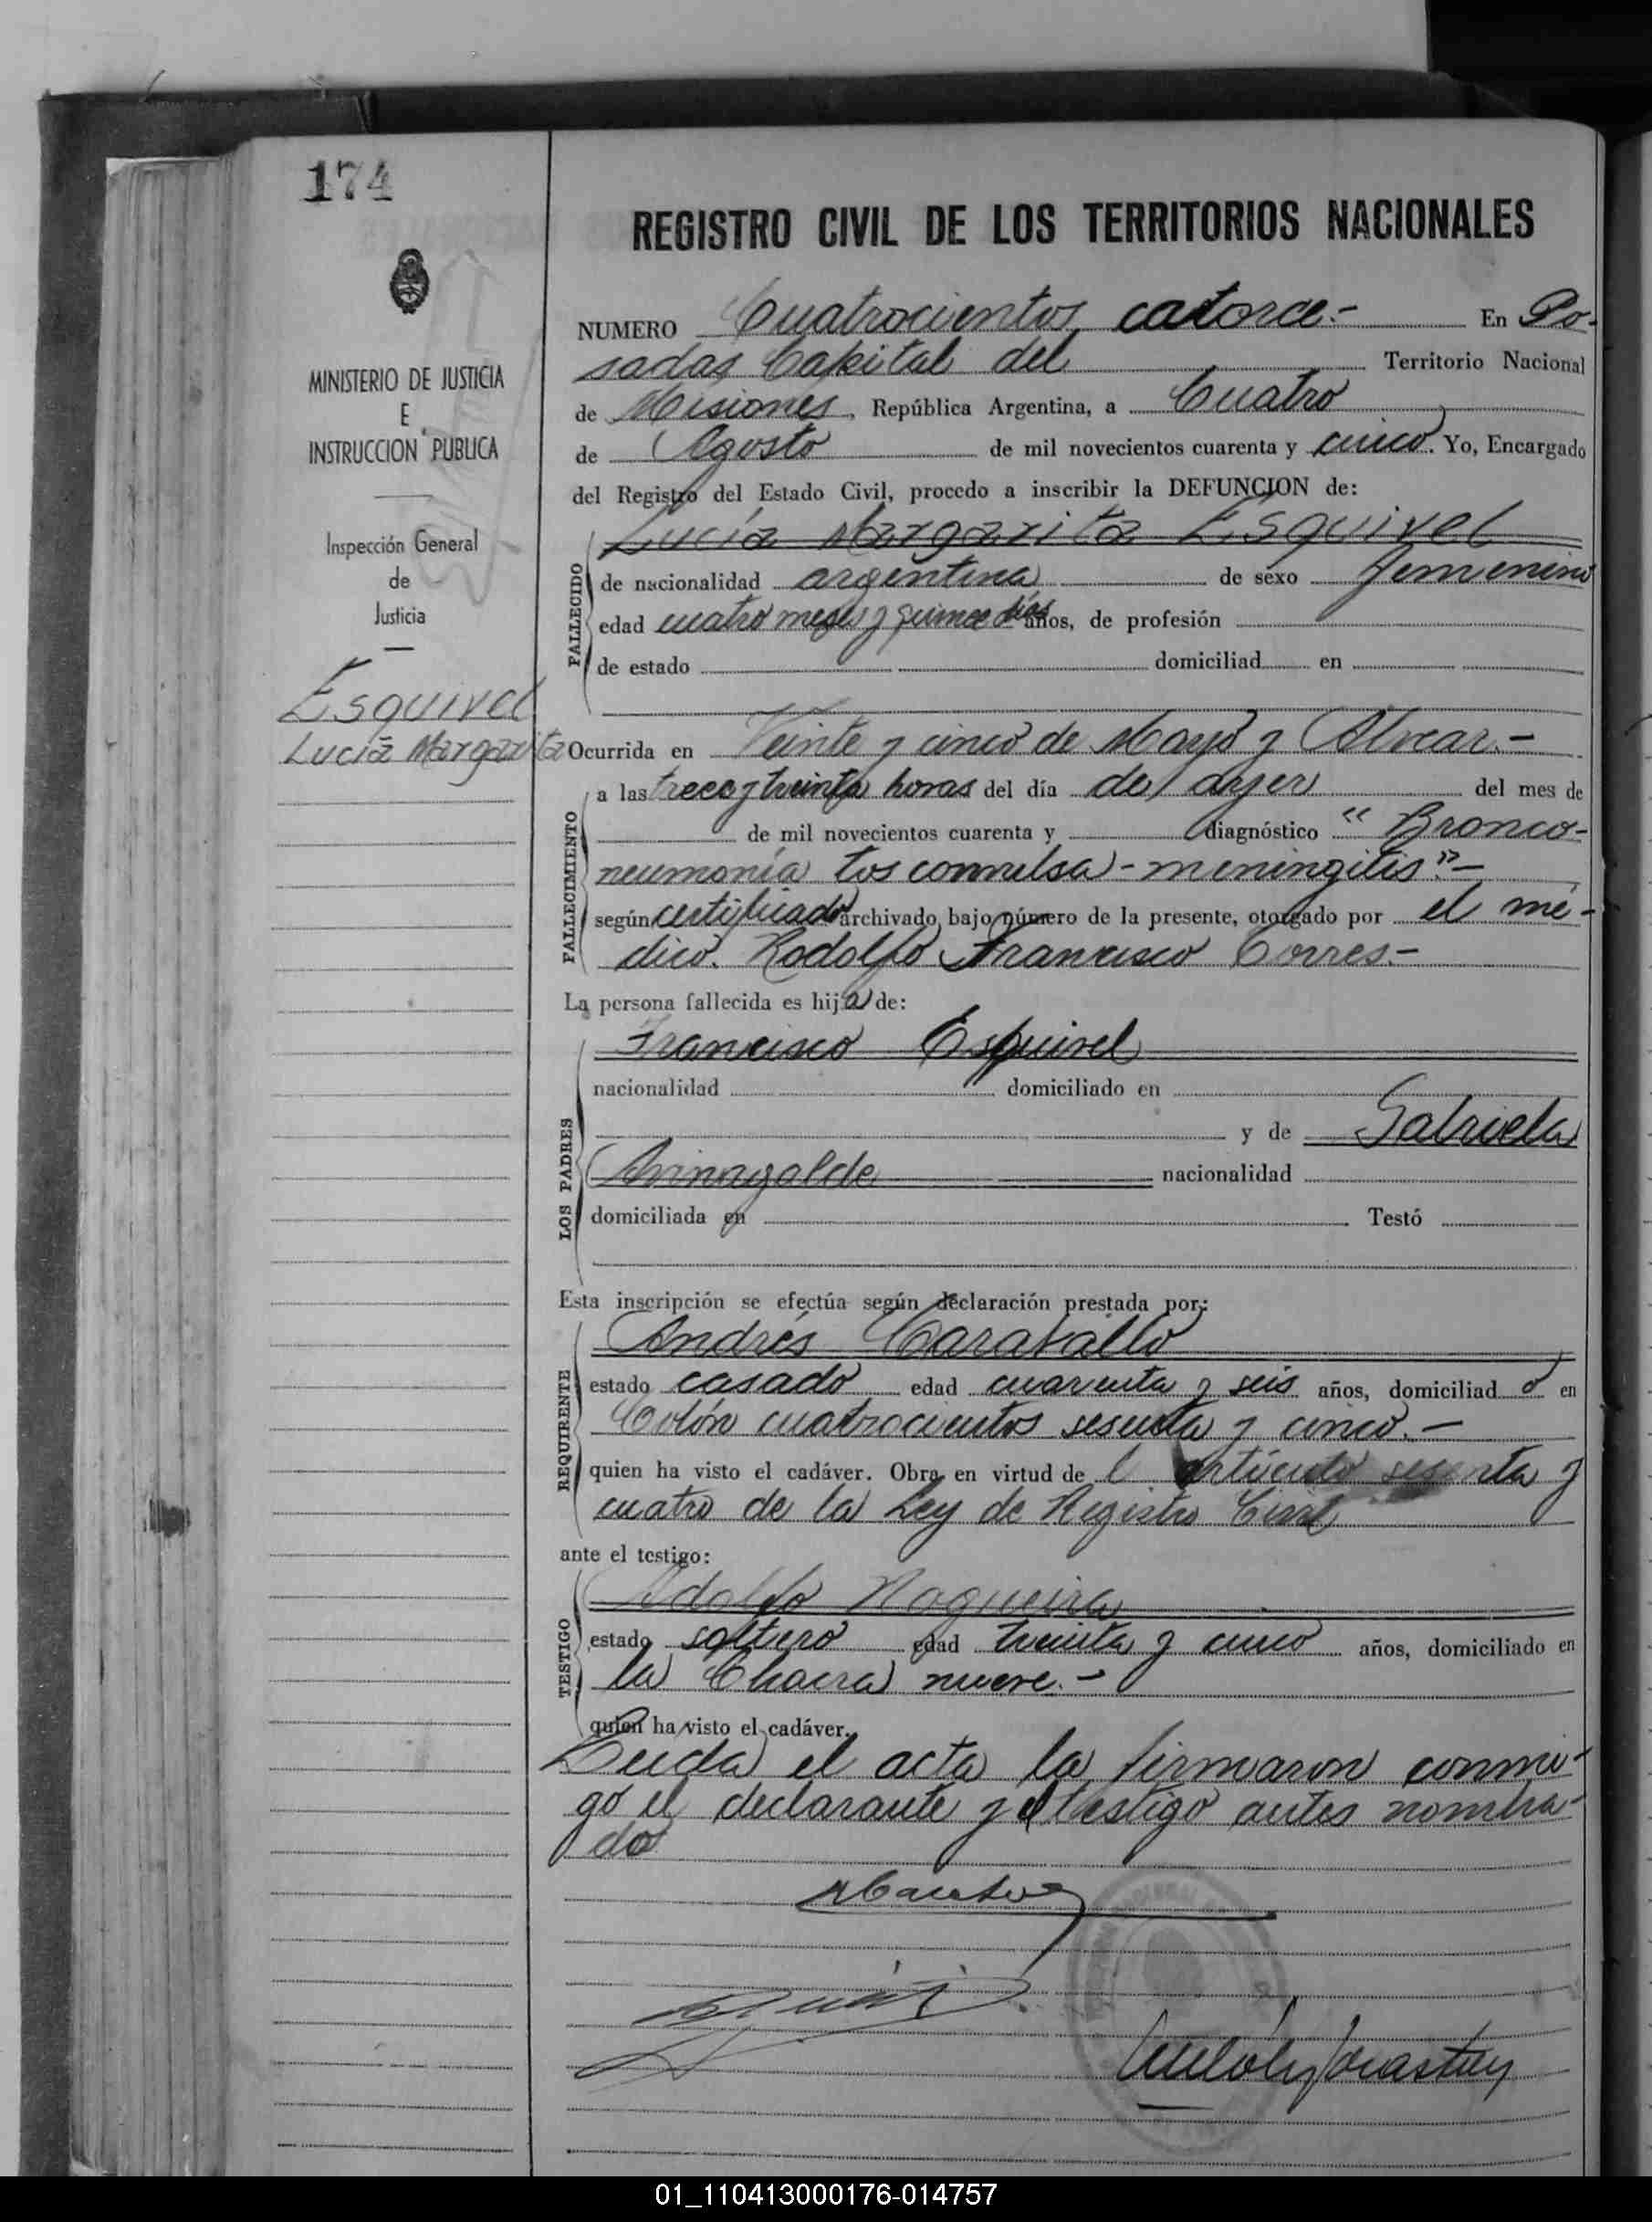 174
REGISTRO CIVIL DE LOS TERRITORIOS NACIONALES
MINISTERIO DE JUSTICIA
E
INSTRUCCION PUBLICA
Inspección General
de
Justicia
Esquivel
Lucía Margarita
NUMERO Cuatrocientos catorce.- En Po-
sadas Capital del Territorio Nacional
de Misiones, República Argentina, a Cuatro
de Agosto de mil novecientos cuarenta y cinco. Yo, Encargado
del Registro del Estado Civil, procedo a inscribir la DEFUNCION de:
Lucía Margarita Esquivel
FALLECIDO
de nacionalidad argentina de sexo femenino
edad cuatro meses y quince días años, de profesión
de estado domiciliad en
Ocurrida en Veinte y cinco de Mayo y Alvear.-
FALLECIMIENTO
a las trece y treinta horas del día de ayer del mes de
de mil novecientos cuarenta y diagnóstico "Bronco-
neumonía tos convulsa - meningitis".-
según certificado archivado bajo número de la presente, otorgado por el mé-
dico. Rodolfo Francisco Torres.-
La persona fallecida es hija de:
LOS PADRES
Francisco Esquivel
nacionalidad domiciliado en
y de Gabriela
nacionalidad
domiciliada en Testó
Esta inscripción se efectúa según declaración prestada por:
REQUIRENTE
Andrés Caravallo
estado casado edad cuarenta y seis años, domiciliad o en
Colón cuatrocientos sesenta y cinco.-
quien ha visto el cadáver. Obra en virtud de l artículo sesenta y
cuatro de la Ley de Registro Civil
ante el testigo:
TESTIGO
Adolfo Nogueira
estado soltero edad treinta y cinco años, domiciliado en
la Chacra nueve.-
quien ha visto el cadáver.
Leída el acta la firmaron conmi-
go el declarante y el testigo antes nombra-
do
01_110413000176-014757